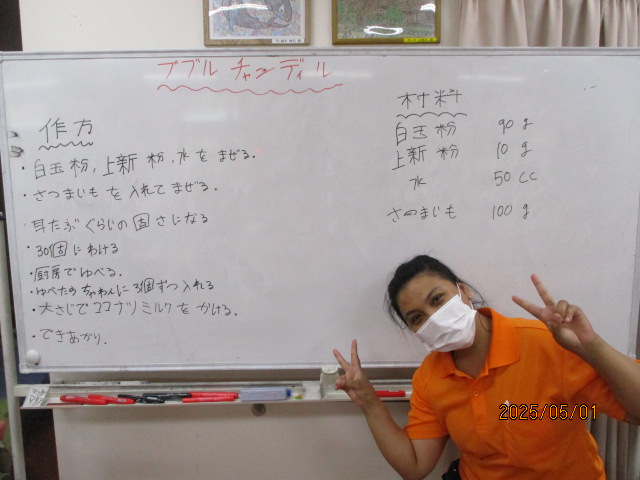 ブブル チャンディル
作方
・白玉粉、上新粉、水をまぜる。
・さつまいもを入れてまぜる。
・耳たぶぐらいの固さになる
・30個にわける
・厨房でゆべる。
・ゆべたのちゃわんに3個ずつ入れる
・大さじでココナツミルクをかける。
・できあがり.
材料
白玉粉 90g
上新粉 10g
水 50cc
さつまいも 100g
2025/05/01